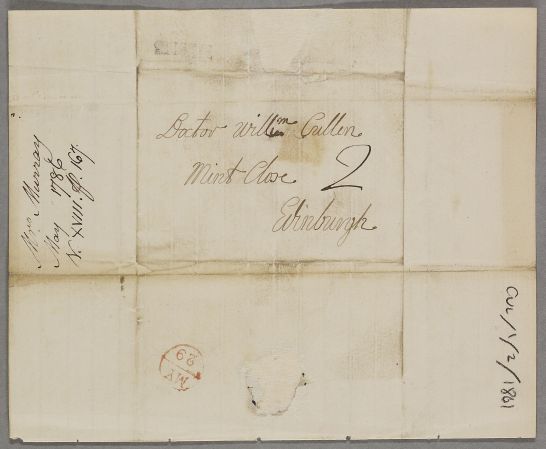 Doctor Willm Cullen
Mint Close 2
Edinburgh
Mrs Murray
May 1786
N. XVIII. pp. 167.
MY
29
CUL/1/2/1861